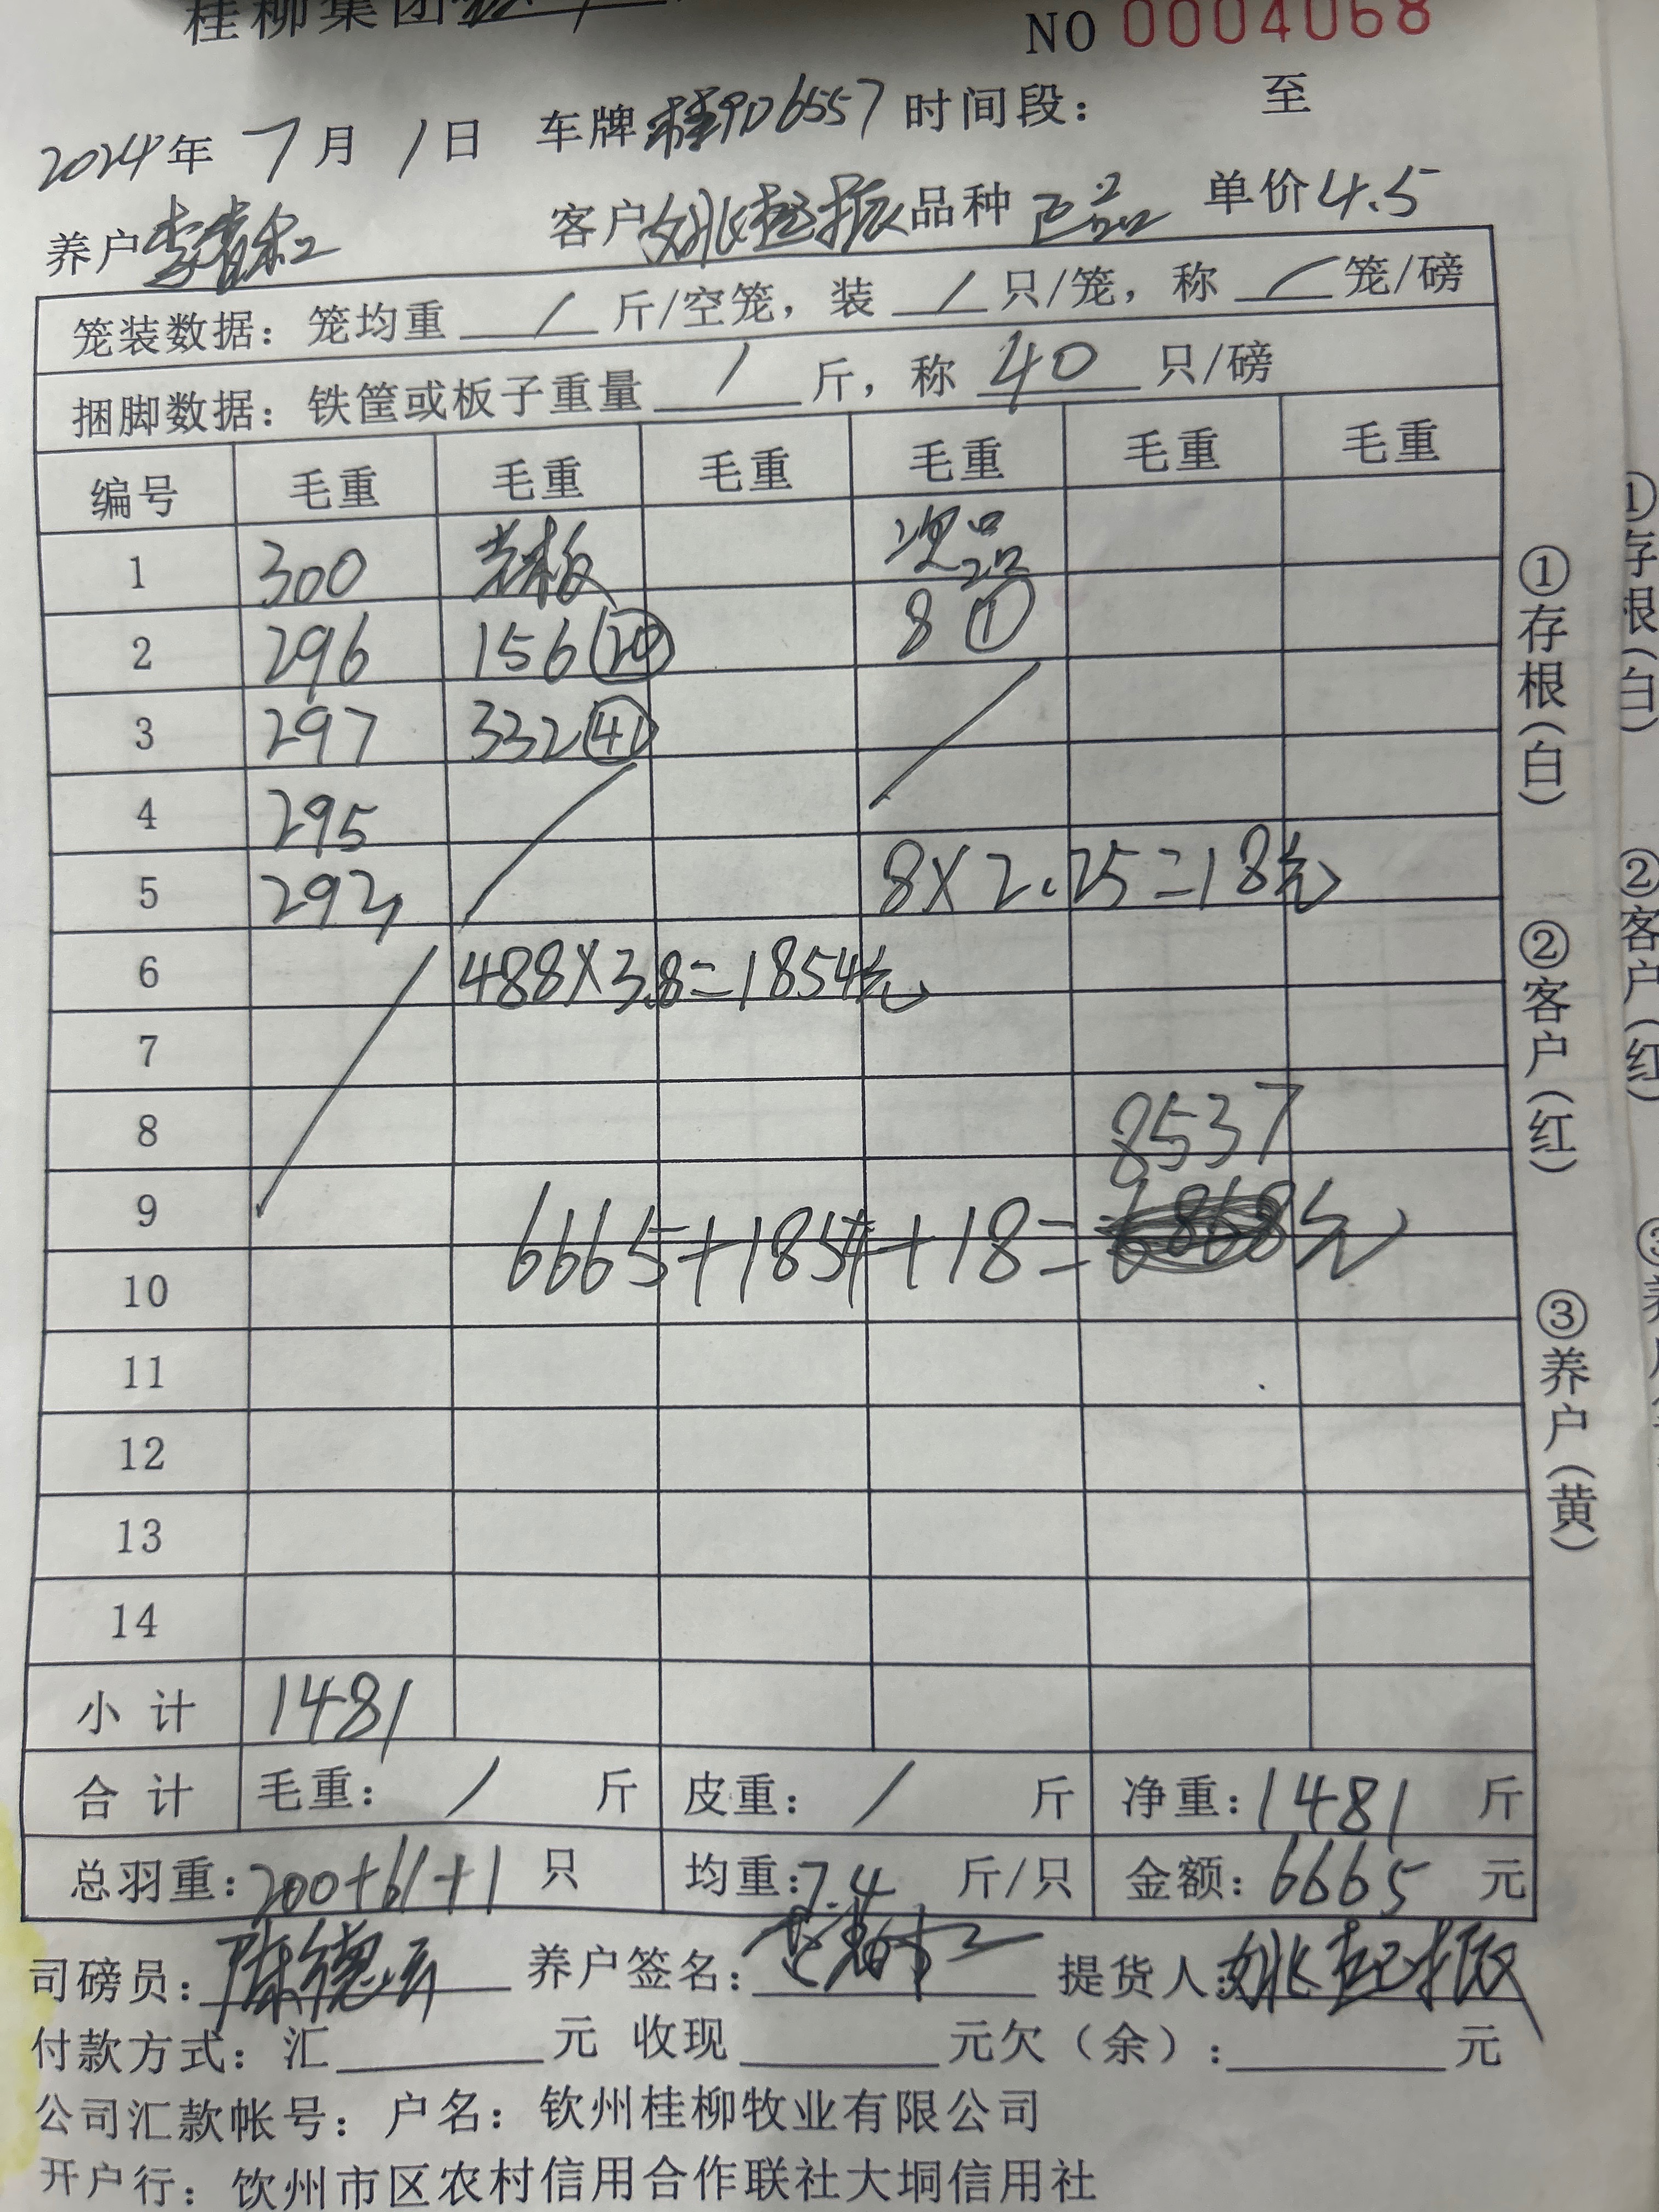 桂柳集团
NO 0004068
2024年 7月 1日 车牌桂PD6557 时间段： 至
养户李春和 客户姚起振 品种 正品 单价4.5
笼装数据：笼均重 / 斤/空笼，装 / 只/笼，称 / 笼/磅
捆脚数据：铁筐或板子重量 / 斤，称 40 只/磅
编号 毛重 毛重 毛重 毛重 毛重 毛重
1 300 次品
2 296 156 ⑳ 8 ①
3 297 332 ㊶
4 295
5 292 8×2.25=18元
6 488×3.8=1854元
7
8 8537
9 6665+1854+18=6868元
10
11
12
13
14
小计 1481
合计 毛重： / 斤 皮重： / 斤 净重：1481 斤
总羽重：200+61+1 只 均重：7.4 斤/只 金额：6665 元
司磅员：陈德云 养户签名： 提货人：姚起振
付款方式：汇 元 收现 元欠（余）： 元
公司汇款帐号：户名：钦州桂柳牧业有限公司
开户行：钦州市区农村信用合作联社大垌信用社
①存根（白） ②客户（红） ③养户（黄）